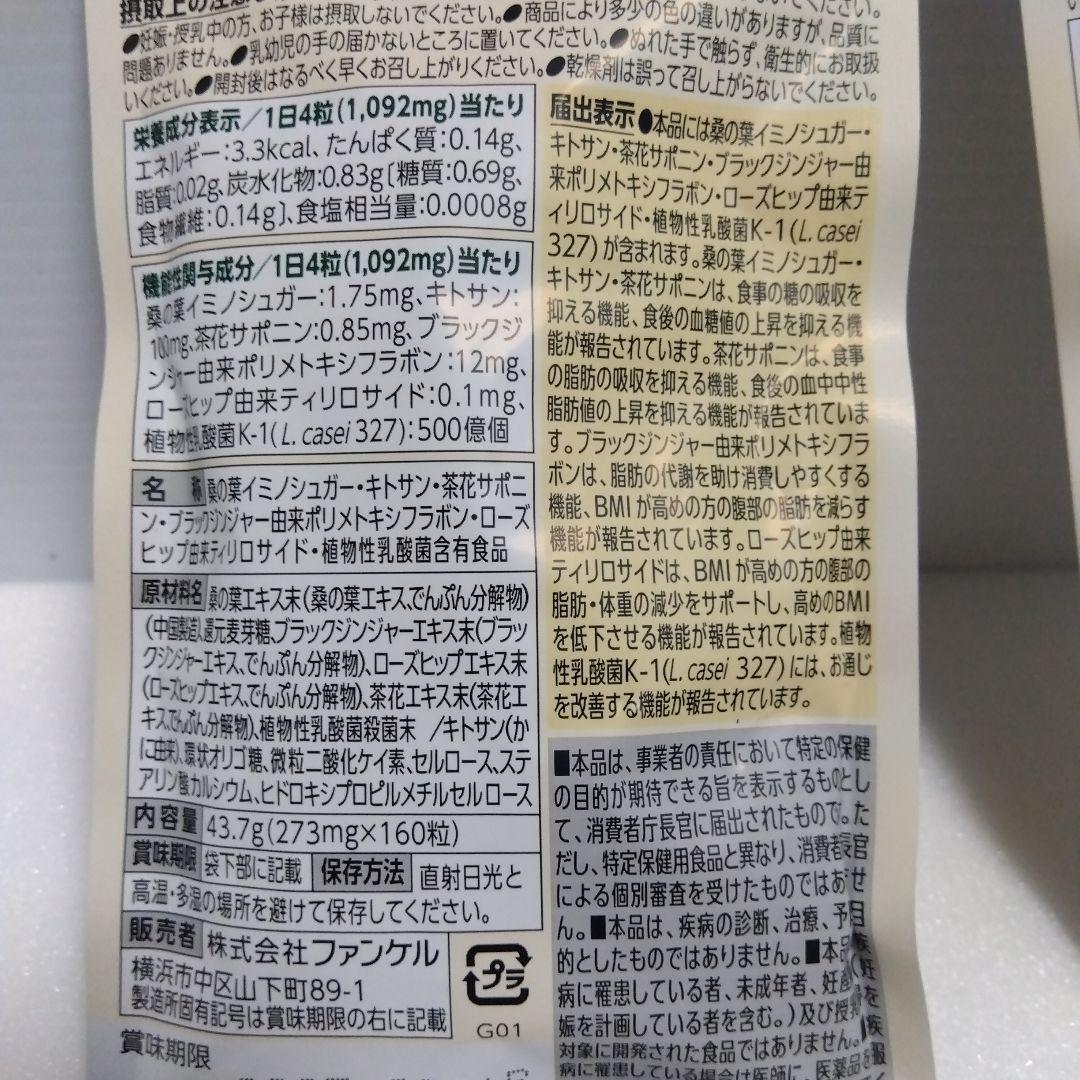 摂取上の注意
●妊娠・授乳中の方、お子様は摂取しないでください。●商品により多少の色の違いがありますが、品質に
問題ありません。●乳幼児の手の届かないところに置いてください。●ぬれた手で触らず、衛生的にお取扱
いください。●開封後はなるべく早くお召し上がりください。●乾燥剤は誤って召し上がらないでください。
栄養成分表示/1日4粒(1,092mg)当たり
エネルギー:3.3kcal、たんぱく質:0.14g、
脂質:0.02g、炭水化物:0.83g〔糖質:0.69g、
食物繊維:0.14g〕、食塩相当量:0.0008g
機能性関与成分/1日4粒(1,092mg)当たり
桑の葉イミノシュガー:1.75mg、キトサン:
100mg、茶花サポニン:0.85mg、ブラックジ
ンジャー由来ポリメトキシフラボン:12mg、
ローズヒップ由来ティリロサイド:0.1mg、
植物性乳酸菌K-1(L. casei 327):500億個
名 称 桑の葉イミノシュガー・キトサン・茶花サポニ
ン・ブラックジンジャー由来ポリメトキシフラボン・ローズ
ヒップ由来ティリロサイド・植物性乳酸菌含有食品
原材料名 桑の葉エキス末(桑の葉エキス、でんぷん分解物)
(中国製造)、還元麦芽糖、ブラックジンジャーエキス末(ブラッ
クジンジャーエキス、でんぷん分解物)、ローズヒップエキス末
(ローズヒップエキス、でんぷん分解物)、茶花エキス末(茶花エ
キス、でんぷん分解物)、植物性乳酸菌殺菌末 /キトサン(か
に由来)、環状オリゴ糖、微粒二酸化ケイ素、セルロース、ステ
アリン酸カルシウム、ヒドロキシプロピルメチルセルロース
内容量 43.7g(273mg×160粒)
賞味期限 袋下部に記載 保存方法 直射日光と
高温・多湿の場所を避けて保存してください。
販売者 株式会社ファンケル
横浜市中区山下町89-1
製造所固有記号は賞味期限の右に記載
プラ
G01
賞味期限
届出表示 ●本品には桑の葉イミノシュガー・
キトサン・茶花サポニン・ブラックジンジャー由
来ポリメトキシフラボン・ローズヒップ由来テ
ィリロサイド・植物性乳酸菌K-1(L. casei
327)が含まれます。桑の葉イミノシュガー・
キトサン・茶花サポニンは、食事の糖の吸収を
抑える機能、食後の血糖値の上昇を抑える機
能が報告されています。茶花サポニンは、食事
の脂肪の吸収を抑える機能、食後の血中中性
脂肪値の上昇を抑える機能が報告されていま
す。ブラックジンジャー由来ポリメトキシフラ
ボンは、脂肪の代謝を助け消費しやすくする
機能、BMIが高めの方の腹部の脂肪を減らす
機能が報告されています。ローズヒップ由来
ティリロサイドは、BMIが高めの方の腹部の
脂肪・体重の減少をサポートし、高めのBMI
を低下させる機能が報告されています。植物
性乳酸菌K-1(L. casei 327)には、お通じ
を改善する機能が報告されています。
■本品は、事業者の責任において特定の保健
の目的が期待できる旨を表示するものとし
て、消費者庁長官に届出されたものです。た
だし、特定保健用食品と異なり、消費者庁長官
による個別審査を受けたものではありませ
ん。■本品は、疾病の診断、治療、予
的としたものではありません。■本品
病に罹患している者、未成年者、妊産
娠を計画している者を含む。)及び授乳
対象に開発された食品ではありません。
病に罹患している場合は医師に、医薬品を服